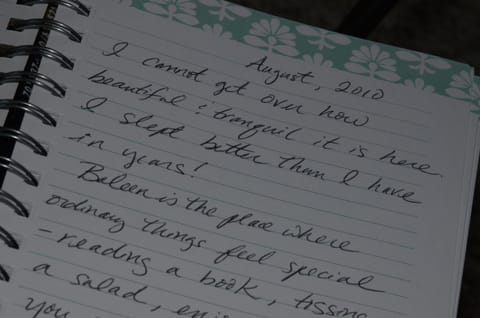 August, 2010
I cannot get over how
beautiful & tranquil it is here.
I slept better than I have
in years!
Baleen is the place where
ordinary things feel special
- reading a book, tossing
a salad,
you